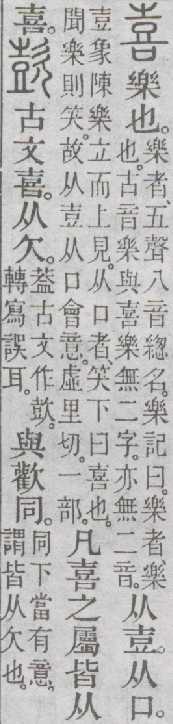 喜樂也。樂者、五聲八音緫名。樂記曰。樂者樂也。古音樂與喜樂無二字。亦無二音。从壴。从口。
壴象陳樂立而上見。从口者笑下曰喜也。聞樂則笑。故从壴从口會意。虛里切。一部。凡喜之屬皆从
喜。歖古文喜。从欠。葢古文作。轉寫誤耳。與歡同。同下當有意。謂皆从欠也。